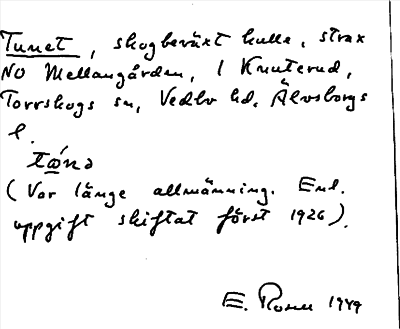 Tunet, skogbeväxt kulle, strax
NO Mellangården, i Knuterud,
Torrskogs sn, Vedbo hd, Älvsborgs
l.
(Var länge allmänning. Enl.
uppgift skiftat först 1926).
E. Rosen 1949